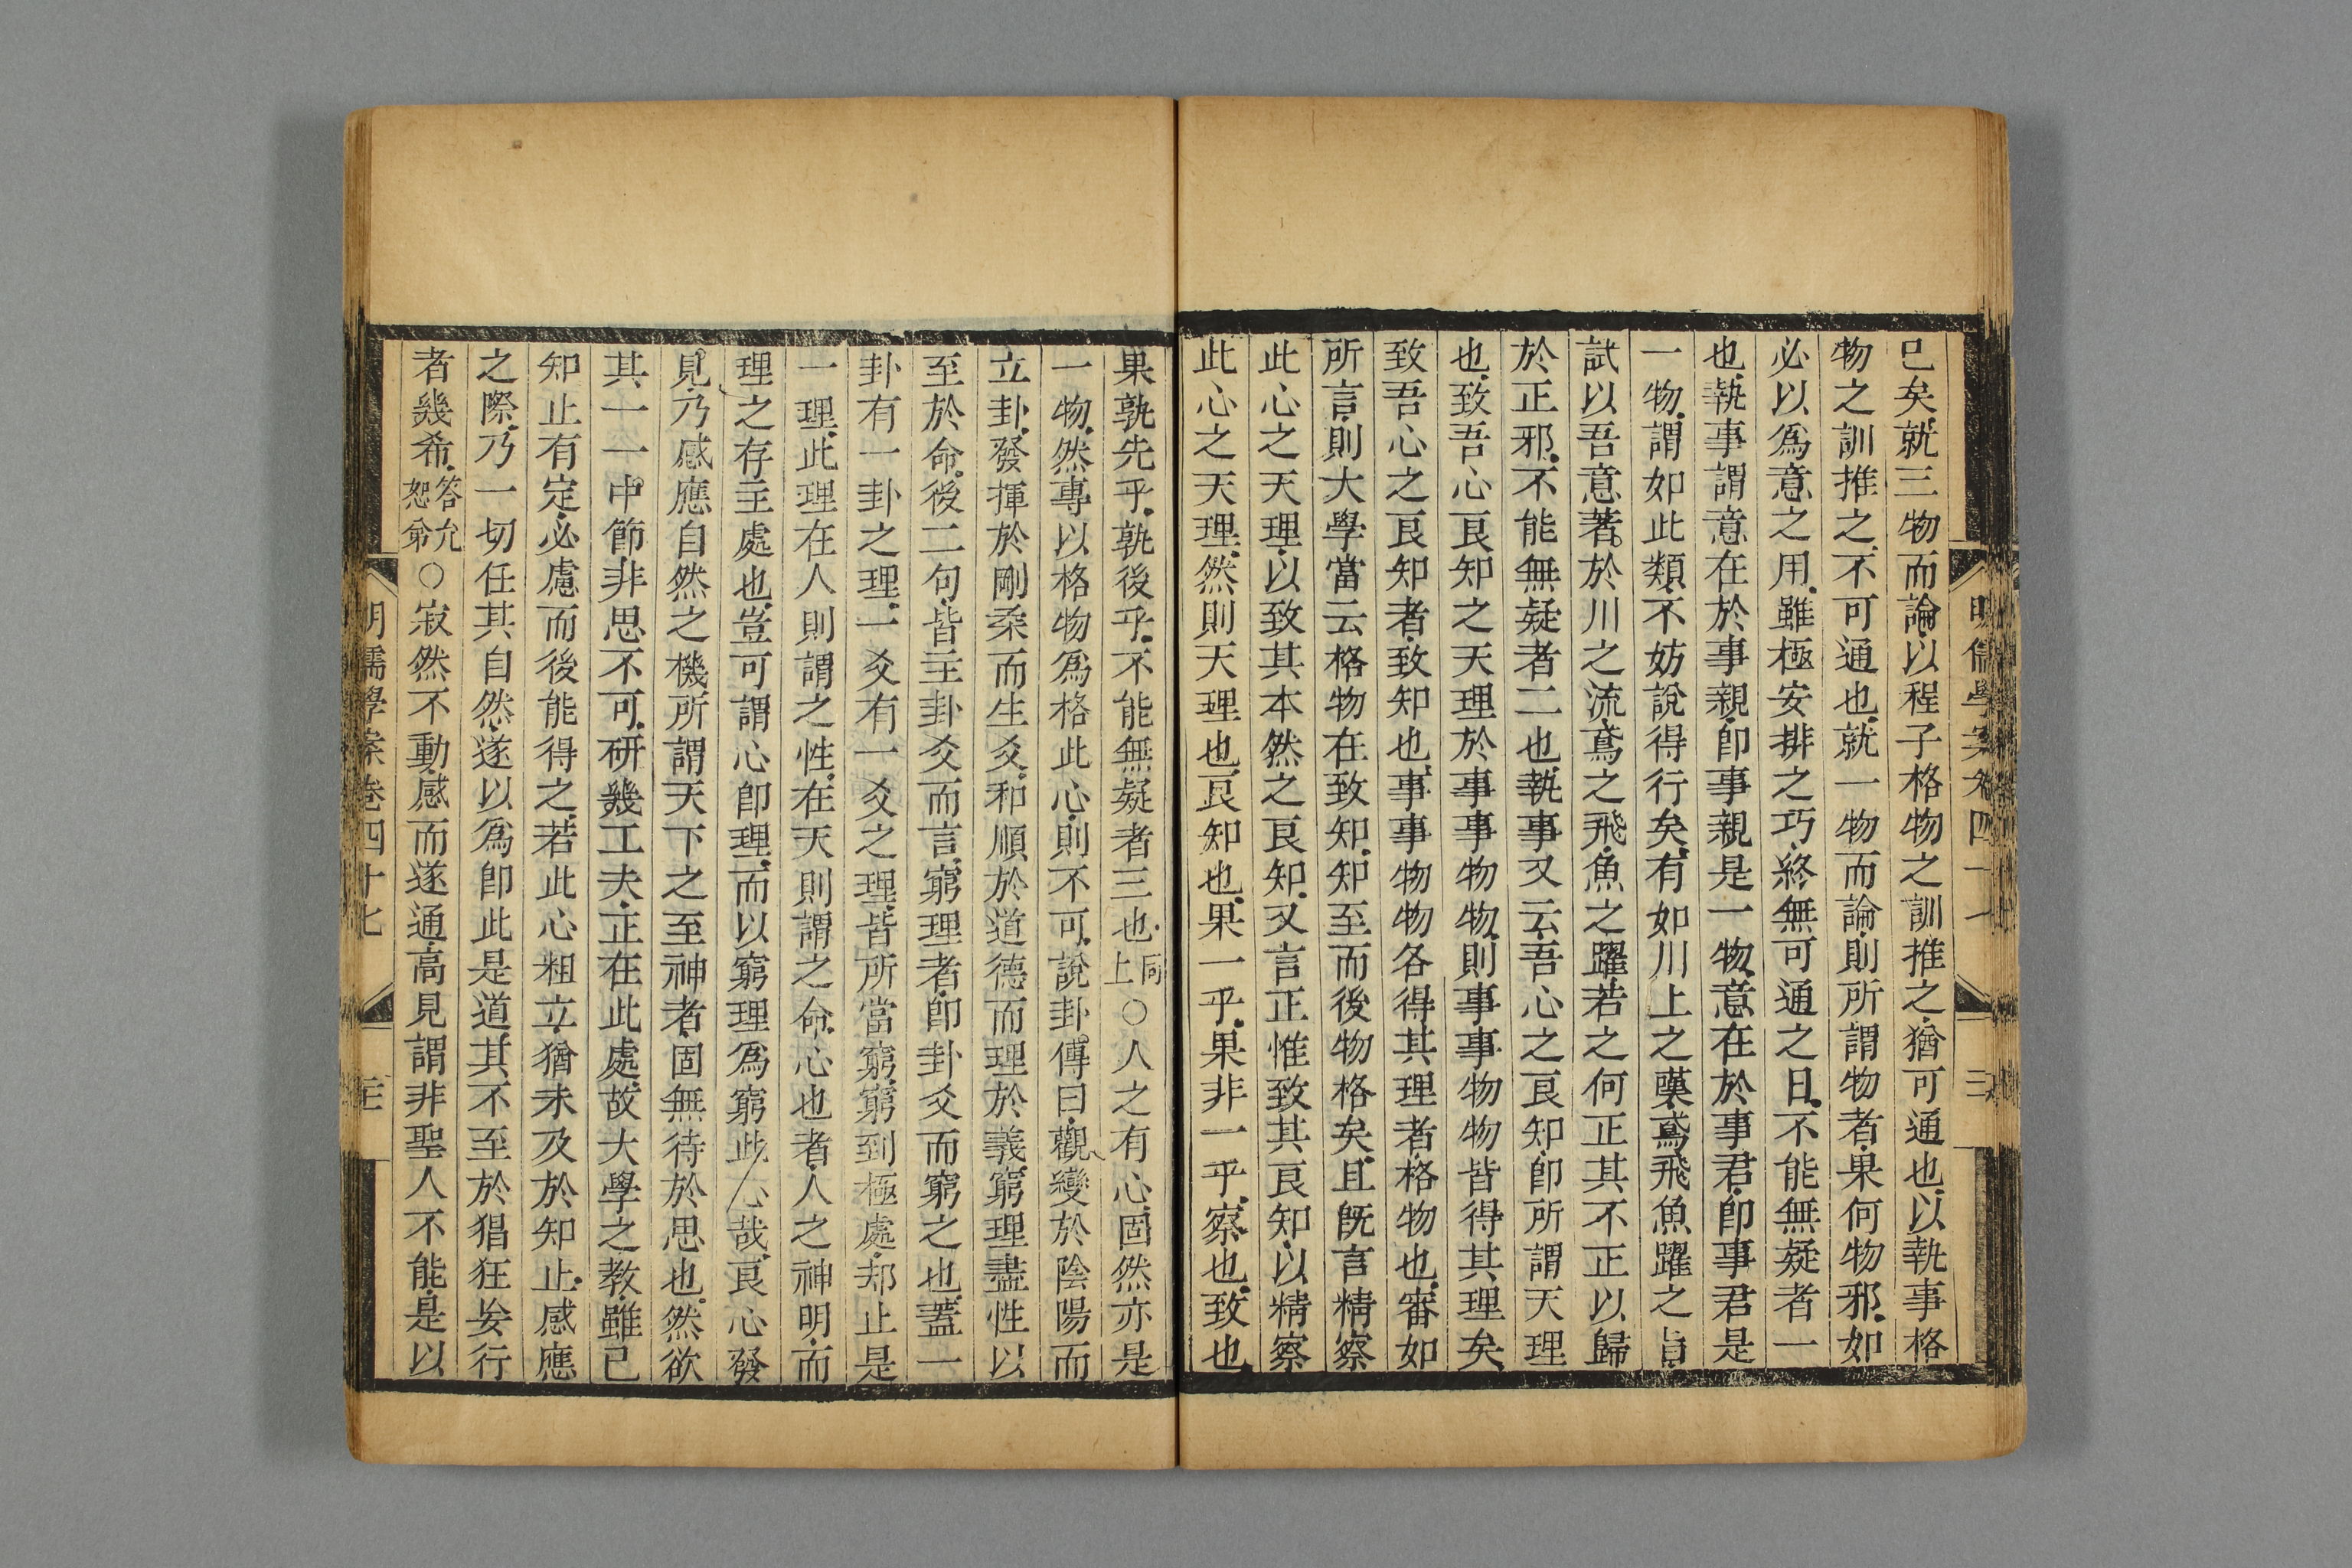 已矣就三物而論以程子格物之訓推之猶可通也以執事格
物之訓推之不可通也就一物而論則所謂物者果何物邪如
必以爲意之用雖極安排之巧終無可通之日不能無疑者一
也執事謂意在於事親卽事親是一物意在於事君卽事君是
一物謂如此類不妨說得行矣有如川上之嘆鳶飛魚躍之旨
試以吾意著於川之流鳶之飛魚之躍若之何正其不正以歸
於正邪不能無疑者二也執事又云吾心之良知卽所謂天理
也致吾心良知之天理於事事物物則事事物物皆得其理矣
致吾心之良知者致知也事事物物各得其理者格物也審如
所言則大學當云格物在致知知至而後物格矣且旣言精察
此心之天理以致其本然之良知又言正惟致其良知以精察
此心之天理然則天理也良知也果一乎果非一乎察也致也
果孰先乎孰後乎不能無疑者三也同上○人之有心固然亦是
一物然專以格物爲格此心則不可說卦傳曰觀變於陰陽而
立卦發揮於剛柔而生爻和順於道德而理於義窮理盡性以
至於命後二句皆主卦爻而言窮理者卽卦爻而窮之也蓋一
卦有一卦之理一爻有一爻之理皆所當窮窮到極處却止是
一理此理在人則謂之性在天則謂之命心也者人之神明而
理之存主處也豈可謂心卽理而以窮理爲窮此心哉良心發
見乃感應自然之機所謂天下之至神者固無待於思也然欲
其一一中節非思不可硏幾工夫正在此處故大學之敎雖已
知止有定必慮而後能得之若此心粗立猶未及於知止感應
之際乃一切任其自然遂以爲卽此是道其不至於猖狂妄行
者幾希答允恕弟○寂然不動感而遂通高見謂非聖人不能是以
明儒學案卷四十七